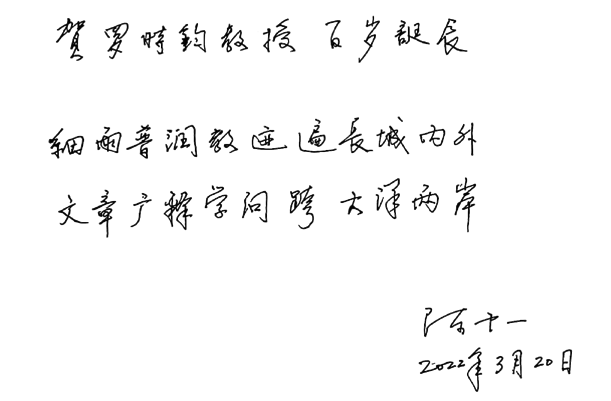 賀罗時鈞教授 百岁誕辰
細雨普润教迹遍長城内外
文章广释学问跨大洋两岸
陈十一
2022年3月20日